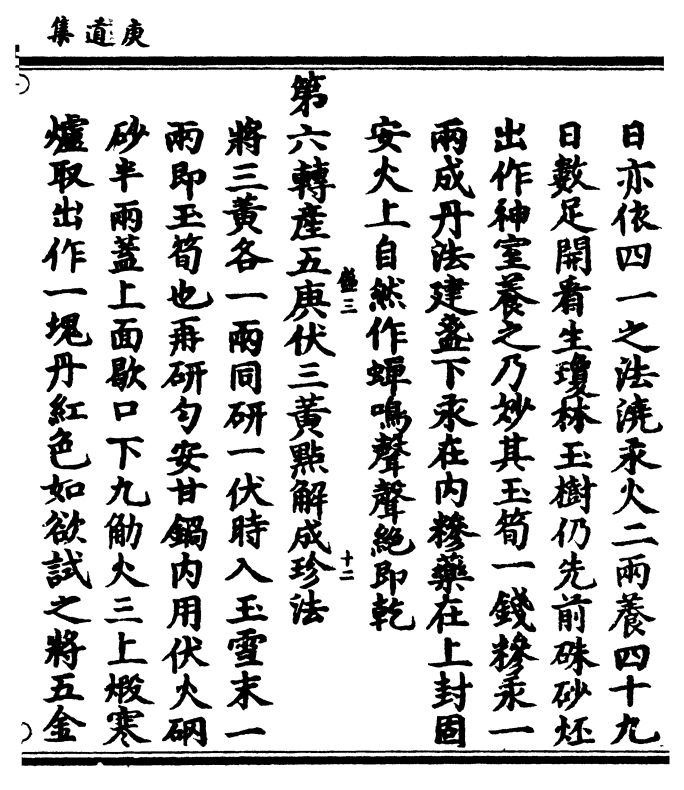 庚道集
日亦依四一之法澆汞火二兩養四十九
日數足開看生瓊林玉樹仍先前硃砂坯
出作神室養之乃妙其玉筍一錢糝汞一
兩成丹法建盞下汞在内糝藥在上封固
安火上自然作蟬鳴聲聲絕即乾
三
十二
第六轉產五庚伏三黃點解成珍法
將三黃各一兩同研一伏時入玉雪末一
兩即玉筍也再研勻安甘鍋内用伏火硇
砂半兩蓋上面歇口下九觔火三上煅寒
爐取出作一塊丹紅色如欲試之將五金